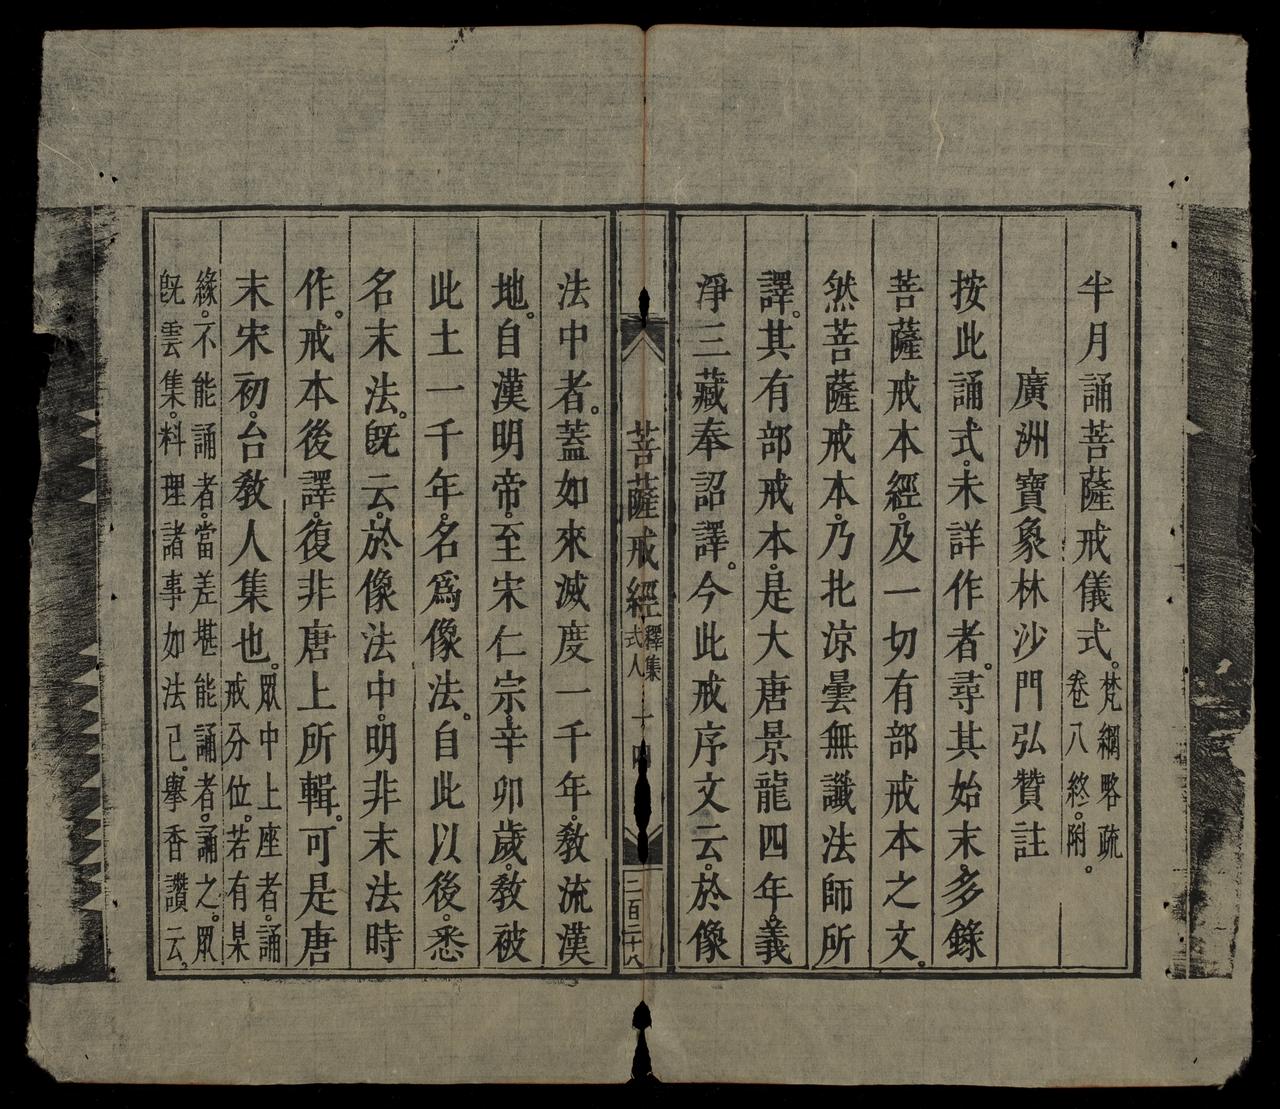 半月誦菩薩戒儀式。梵綱略疏
卷八終。附。
廣洲寶象林沙門弘贊註
按此誦式。未詳作者。尋其始末。多錄
菩薩戒本經。及一切有部戒本之文。
然菩薩戒本乃北涼曇無讖法師所
譯。其有部戒本。是大唐景龍四年。義
淨三藏奉詔譯。今此戒序文云。於像
菩薩戒經 釋集
式人 十四
二百三十八
法中者。蓋如來滅度一千年。教流漢
地。自漢明帝。至宋仁宗。辛卯歲。教被
此土一千年。名爲像法。自此以後。悉
名末法。旣云。於像法中。明非末法時
作。戒本後譯。復非唐上所輯。可是唐
末宋初。台教人集也。眾中上座者。誦
戒分位。若有杲
緣。不能誦者。當差堪能誦者。誦之。眾
旣雲集。料理諸事如法已。擧香讚云。